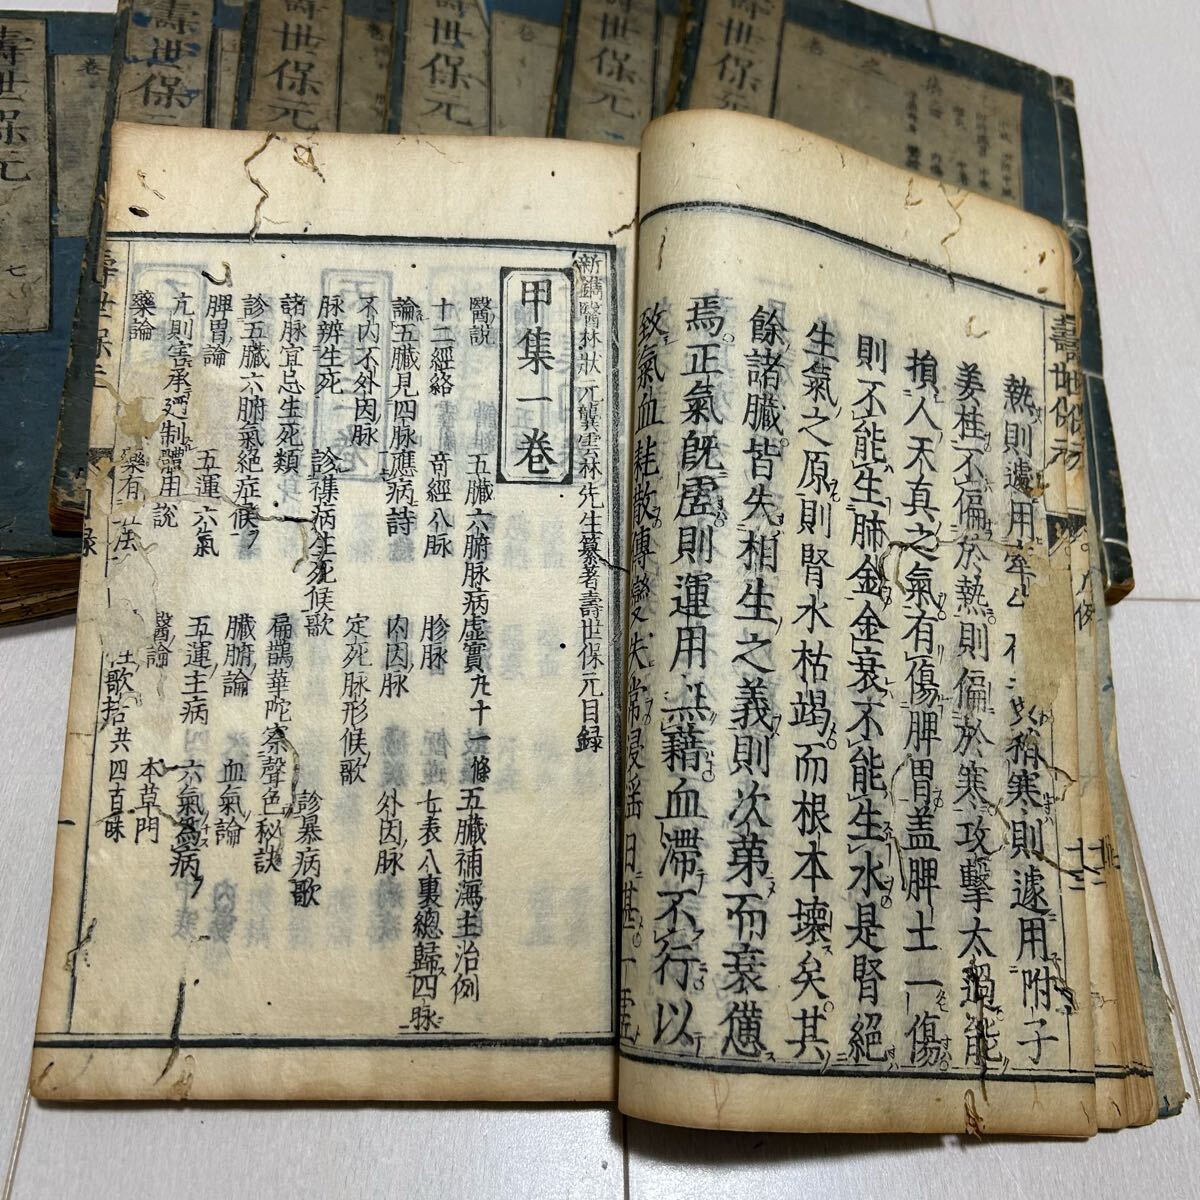 壽世保元
熱則遽用
稱寒則遽用附子
姜桂不偏於熱則偏於寒攻擊太過能
損人天真之氣有傷脾胃盖脾土一傷
則不能生肺金金衰不能生水是腎絕
生氣之原則腎水枯竭而根本壞矣其
餘諸臟皆失相生之義則次第而衰憊
焉正氣既虛則運用無藉血滯不行以
致氣血耗散傳變失常浸淫日甚一
新鐫醫林狀元龔雲林先生纂著壽世保元目録
甲集一卷
醫說 五臟六腑脉病虛實九十一條 五臟補瀉主治例
十二經絡 奇經八脉 胗脉 七表八裏總歸四脉
論五臟見四脉應病詩 内因脉 外因脉
不内不外因脉 定死脉形候歌
脉辨生死 診雜病生死候歌 診暴病歌
諸脉宜忌生死類 扁鵲華陀察聲色秘訣
診五臟六腑氣絕症候 臟腑論 血氣論
脾胃論 五運六氣 五運主病 六氣為病
亢則害承廼制體用説 醫論 本草門
藥論 藥有五法 性歌 拾共四百味
壽世保元
壽世保元
壽世保元
壽世保元
壽世保元
壽世保元 七